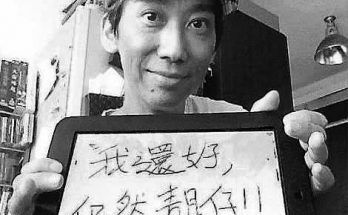 我還好,
仍然靚仔!!